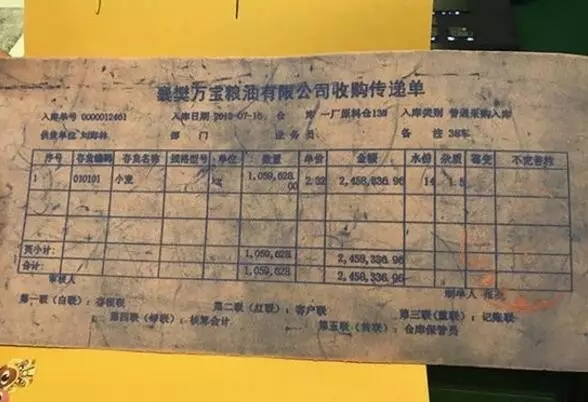 襄樊万宝粮油有限公司收购传递单
入库单号 0000012461 入库日期 2013-07-15 仓 库 一厂原料仓138 入库类别 普通采购入库
供货单位 刘海林 部 门 业务员 备注 38车
序号 存货编码 存货名称 规格型号 单位 数量 单价 金额 水份 杂质 霉变 不完善粒
1 010101 小麦 kg 1,059,628.00 2.32 2,458,336.96 14 1.5
页小计: 1,059,628. 2,458,336.96
合计: 1,059,628. 2,458,336.96
审核人 制单人
第一联(白联):存根联 第二联(红联):客户联 第三联(蓝联):记账联
第四联(绿联):核算会计 第五联(黄联):仓库保管员